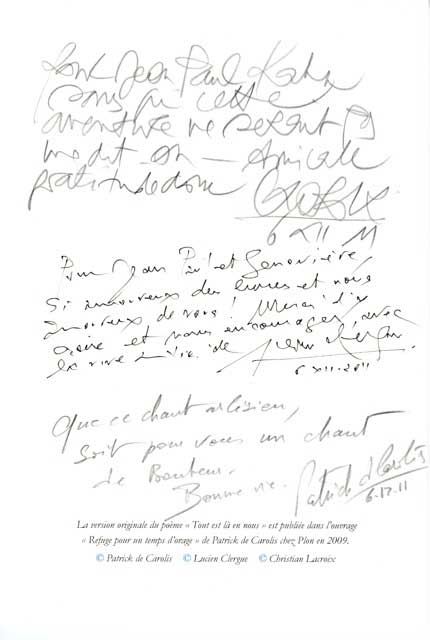 Pour Jean Paul Kahn
sans qui cette
aventure ne serait pas
amicale
gratitude donc
6 XII 11
Pour Jean Paul et Geneviève,
Si amoureux des livres et nous
amoureux de vous! Merci d'y
croire et nous encourager, avec
la vive de
6 XII-2011
Que ce chant arlésien,
soit pour vous un chant
de Bonheur.
Bonne vie. Patrick d Carolis
6.12.11
La version originale du poème « Tout est là en nous » est publiée dans l'ouvrage
« Refuge pour un temps d'orage » de Patrick de Carolis chez Plon en 2009.
© Patrick de Carolis © Lucien Clergue © Christian Lacroix